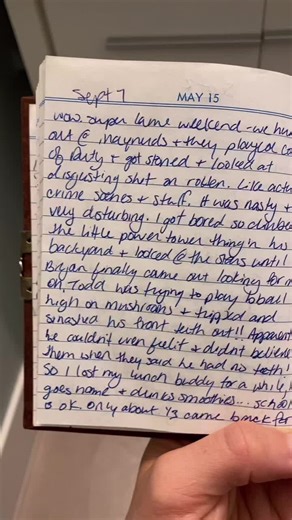 Sept 7 MAY 15
wow. super lame weekend - we hu
out @ maynards + they played Ca
of Duty + got stoned + looked at
disgusting shit on rotten. Like actu
crime scenes + stuff. It was nasty +
very disturbing. I got bored so climbed
the little power tower thing in his
backyard + looked @ the stars until
Bryan finally came out looking for m
on. Todd was trying to play bball
high on mushrooms + tripped and
smashed his front teeth out!! Apparent
he couldn't even feel it + didn't believe
them when they said he had no teeth!
So I lost my lunch buddy for a while,
goes home + drinks smoothies... school
is ok. only about 1/3 came back for